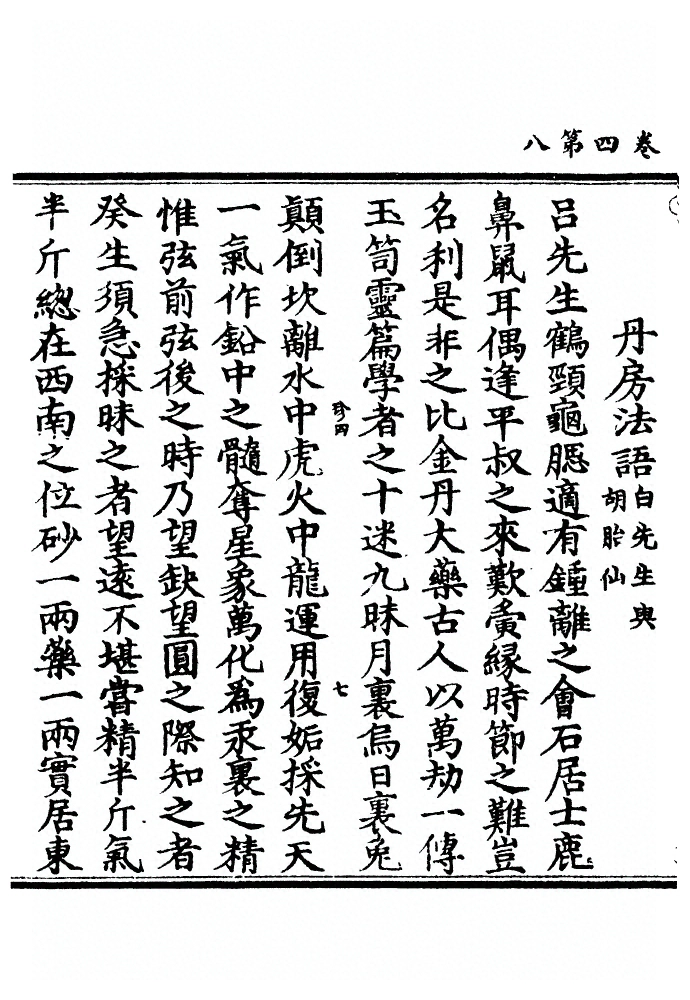 卷四第八
丹房法語白先生與胡胎仙
呂先生鶴頸龜腮適有鍾離之會石居士鹿
鼻鼠耳偶逢平叔之來歎夤緣時節之難豈
名利是非之比金丹大藥古人以萬劫一傳
玉笥靈篇學者之十迷九昧月裏烏日裏兔
珍四 七
顛倒坎離水中虎火中龍運用復姤採先天
一氣作鉛中之髓奪星象萬化為汞裏之精
惟弦前弦後之時乃望缺望圓之際知之者
癸生須急採昧之者望遠不堪嘗精半斤氣
半斤總在西南之位砂一兩藥一兩實居東